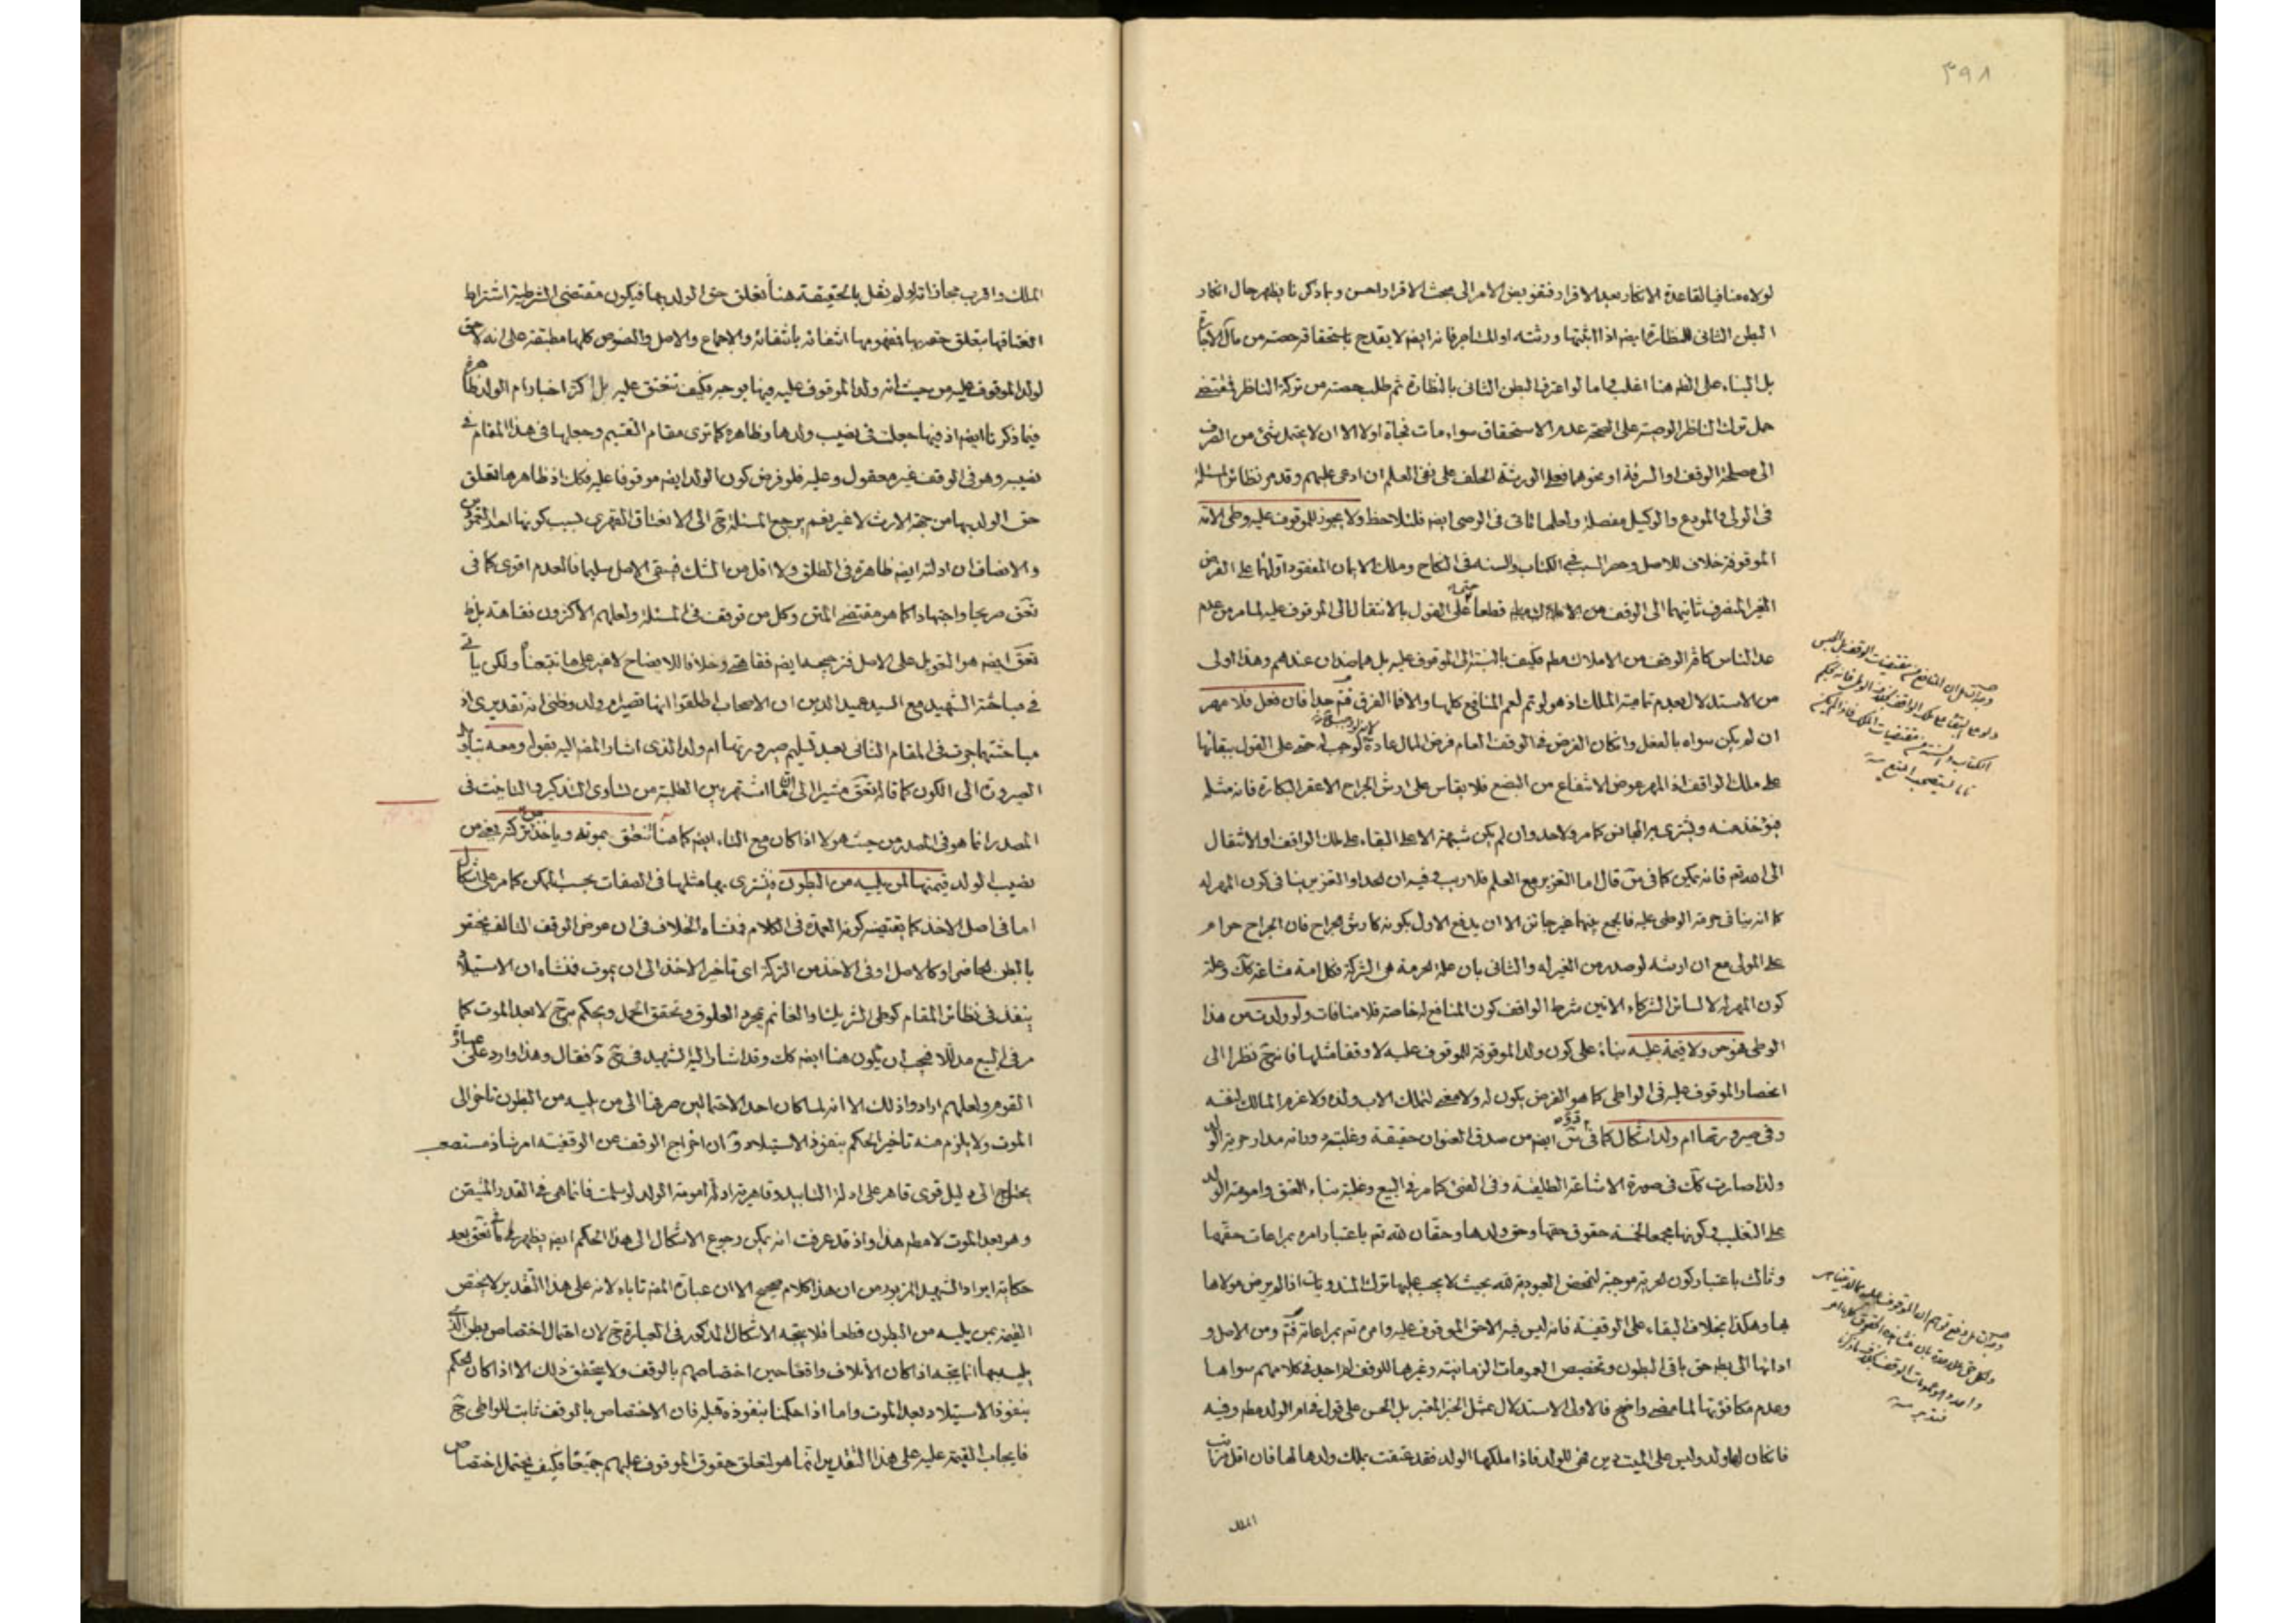 ٣٩٨
لولاه منافيا لقاعدة الانكار بعد الاقرار فتفويض الامر الى مبحث الاقرار احسن وبما ذكرنا يظهر حال انكار
البطن الثانى للنظارة ايضم اذا اثبتها ورثته او المستاجر فانه ايضم لا يقدح باستحقاقه حصته من مال الاجارة
بل البناء على الظم هنا اغلب فيما لو اعترف البطن الثانى بالنظارة ثم طلب حصته من تركة الناظر فمقتضى
حمل ترك الناظر الوصية على الصحة عدم الاستحقاق سواء مات فجأة اولا الا ان لا يحتمل شئ من الصرف
الى مصلحة الوقف او السرقة او نحوهما فعلى الورثة الحلف على نفى العلم ان ادعى عليهم وقد مر نظائر المسئلة
فى الولى والمودع والوكيل مفصلة ولعلها تاتى فى الوصى ايضم فلتلاحظ ولا يجوز للموقوف عليه وطى الامة
الموقوفة خلاف للاصل وحصر السبب فى الكتاب والسنة فى النكاح وملك الايمان المفقود اولهما على الفرض
الغير المنصرف ثانيهما الى الوقف من الاملاك قطعا على القول بالانتقال الى الموقوف عليه لما مر من عدم
عد الناس كافة الوقف من الاملاك مطم فكيف بالنسبة الى الموقوف عليه بل هما ضدان عندهم وهذا اولى
من الاستدلال بعدم تمامية الملك اذ هو لو تم لعم المنافع كلها والا فالفرق فتم جدا فان فعل فلا مهر
ان لم يكن سواه بالفعل وامكان الفرض فى الوقف العام فرض المال عادة كوجب له حتى على القول ببقائها
على ملك الواقف اذ المهر عوض الانتفاع من البضع فلا يقاس على ارش الجراح الا عقر البكارة فانه مثله
فيؤخذ منه ويشترى به المجانس كما مر ولا حد وان لم يكن شبهة الا على البقاء على ملك الواقف او الانتقال
الى الله تعم فانه يمكن كما فى قال اما التعزير مع العلم فلا ريب فيه فيه ان الحد او التعزير ينافى كون المهر له
كما انه ينافى حرمة الوطى عليه فالجمع بينهما غير جائز الا ان يدفع الاول بكونه كارش الجراح فان الجراح حرام
على المولى مع ان ارشه لو صدر من الغير له والثانى بان علة الحرمة هى الشركة فكل امة مشاعة كك وعلة
كون المهر له لا لسائر الشركاء الاتين شرط الواقف كون المنافع له خاصة فلا منافات ولو ولدت من هذا
الوطى فهو حر ولا قيمة عليه بناء على كون ولد الموقوفة للموقوف عليه لا وقفا مثلها فانه ح نظرا الى
انحصار الموقوف عليه فى الواطى كما هو الفرض يكون له ولا معنى لتملك الاب ولده ولا غرم المالك لنفسه
وفى صيرورتها ام ولد اشكال كما فى ايضم من صدق العنوان حقيقة وغلبته ودانه مدار حرية الولد
ولذا صارت كك فى صورة الاشاعة الطليقة وفى الفئ كما مر فى البيع وغلبة بناء العتق واموهة الولد
على التغليب فى كونها مجمعا لخمسة حقوق حقها وحق ولدها وحقان لله تعم باعتبار امره بمراعات حقهما
وثالث باعتبار كون الحرية موجبة لتمحض العبودية لله بحيث لا يجب عليها ترك المندوبات اذا لم يرض مولاها
بها وهكذا بخلاف البقاء على الوقفية فانه ليس فيه الا حق الموقوف عليه وامره تعم بمراعاته فتم ومن الاصل و
ادائها الى بطم حق باقى البطون وتخصيص العمومات الزمانية وغيرها للوقف لم اجده فى كلامهم سواها
وعدم مكافؤتها لما مضى واضح فالاولى الاستدلال بمثل الخبر المعتبر بل الحسن على قول فى ام الولد مطم وفيه
فان كان لها ولد وليس على الميت دين فهى للولد فاذا ملكها الولد فقد عتقت بملك ولدها لها فان اقل مراتب
الملك
الملك واقرب مجازاته لو لم نقل بالحقيقة هنا تعلق حق الولد بها فيكون مقتضى الشرطية اشتراط
انعتاقها بتعلق حقه بها فمفهومها انتفائه بانتفائه والاجماع والاصل والنصوص كلها مطبقة على انه لا حق
لولد الموقوف عليه من حيث انه ولد الموقوف عليه فيها بوجه فكيف تنعتق عليه بل اكثر اخبار ام الولد ظاهرة
فيما ذكرنا ايضم اذ فيها جعلت فى نصيب ولدها وظاهره كما ترى مقام التقسيم وجعلها فى هذا المقام فى
نصيبه وهو فى الوقف غير معقول وعليه فلو فرض كون الولد ايضم موقوفا عليه فكك اذ ظاهرها تعلق
حق الولد بها من جهة الارث لا غير نعم يرجع المسئلة ح الى الانعتاق القهرى بسبب كونها احد العمودين
والانصاف ان ادلته ايضم ظاهرة فى الطلق ولا اقل من الشك فيبقى الاصل سليما فالعدم اقوى كما فى
صريحا واجتهادا كما هو مقتضى المتن وكل من توقف فى المسئلة ولعلهم الاكثرون نفاهته بل ط
ايضم هو التعويل على الاصل فترجيحه ايضم فقاهتى وخلافا للايضاح لا غير على ما تتبعنا ولكن ياتى
فى مباحثة الشهيد مع السيد عميد الدين ان الاصحاب اطلقوا انها تصير ام ولد وظنى انه تقديرى اذ
مباحثتهما جرت فى المقام الثانى بعد تسليم صيرورتها ام ولد الذى اشار المضم اليه بقوله ومعه
الصيرورة الى الكون كما قاله مشيرا الى انه لما اشتهر بين الطلبة من تساوى التذكير والتانيث فى
المصدر انما هو فى المصدر من حيث هو لا اذا كان مع التاء ايضم كما هنا تنعتق بموته ويؤخذ من تركته بغير من
نصيب الولد قيمتها لمن يليه من البطون فيشترى بها مثلها فى الصفات بحسب الممكن كما مر على اشكال
اما فى اصل الاخذ كما يقتضيه كونه العمدة فى الكلام فمنشاه الخلاف فى ان عوض الوقف التالف يختص
بالبطن الحاضر او كالاصل او فى الاخذ من التركة اى تاخير الاخذ الى ان يموت فمنشاه ان الاستيلاد
ينفذ فى نظائر المقام كوطى الشريك او الغانم بمجرد العلوق وتحقق الحمل ويحكم به ح لا بعد الموت كما
مر فى البيع مدللا فيجب ان يكون هنا ايضم كك وقد اشار اليه الشهيد فى فقال وهذا وارد على عبارة
القوم ولعلهم ارادوا ذلك الا انه لما كان احد الاحتمالين صرفها الى من يليه من البطون تاخر الى
الموت ولا يلزم منه تاخير الحكم بنفوذ الاستيلاد و ان اخراج الوقف عن الوقفية امر شاذ مستصعب
يحتاج الى دليل قوى قاهر على ادلة التابيد وقاهرية ادلة امومة الولد لو سلمت فانما هى فى القدر المتيقن
وهو بعد الموت لا مطم هذا واذ قد عرفت انه يمكن رجوع الاشكال الى هذا الحكم ايضم يظهر لك ما فى بعد
حكاية ايراد الشهيد المزبور من ان هذا كلام صحيح الا ان عبارة المضم تاباه لانه على هذا التقدير لا يختص
القيمة بمن يليه من البطون قطعا فلا يتجه الاشكال المذكور فى العبارة ح لان احتمال اختصاص بطن الذى
يليه بها انما يتجه اذا كان الاتلاف واقعا حين اختصاصهم بالوقف ولا يتحقق ذلك الا اذا كان الحكم
بنفوذ الاستيلاد بعد الموت واما اذا حكمنا بنفوذه قبله فان الاختصاص بالوقف ثابت للواطى ح
فايجاب القيمة عليه على هذا التقدير انما هو لتعلق حقوق الموقوف عليهم جميعا فكيف يحتمل اختصاص